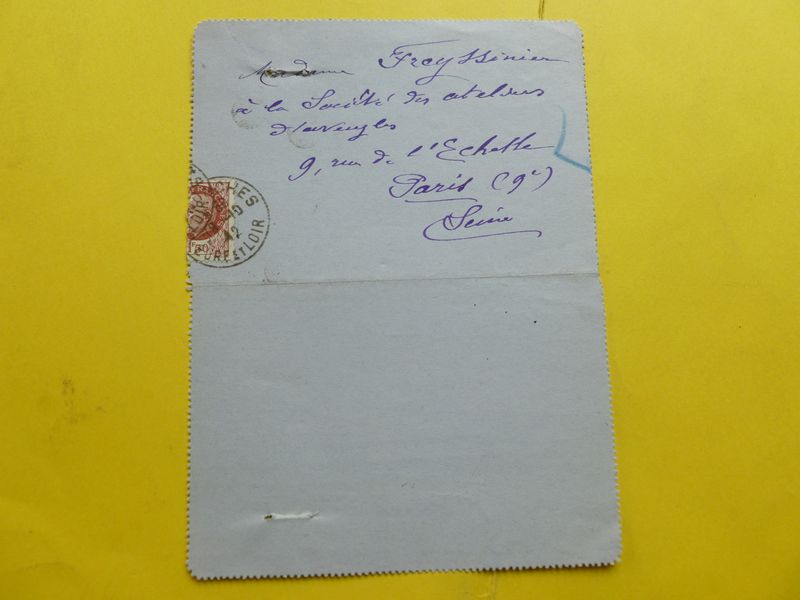 Madame Freyssinier
à la Société des ateliers
d'aveugles
9, rue de l'Echelle
Paris (9e)
Seine
HES
10
42
EURE ET LOIR